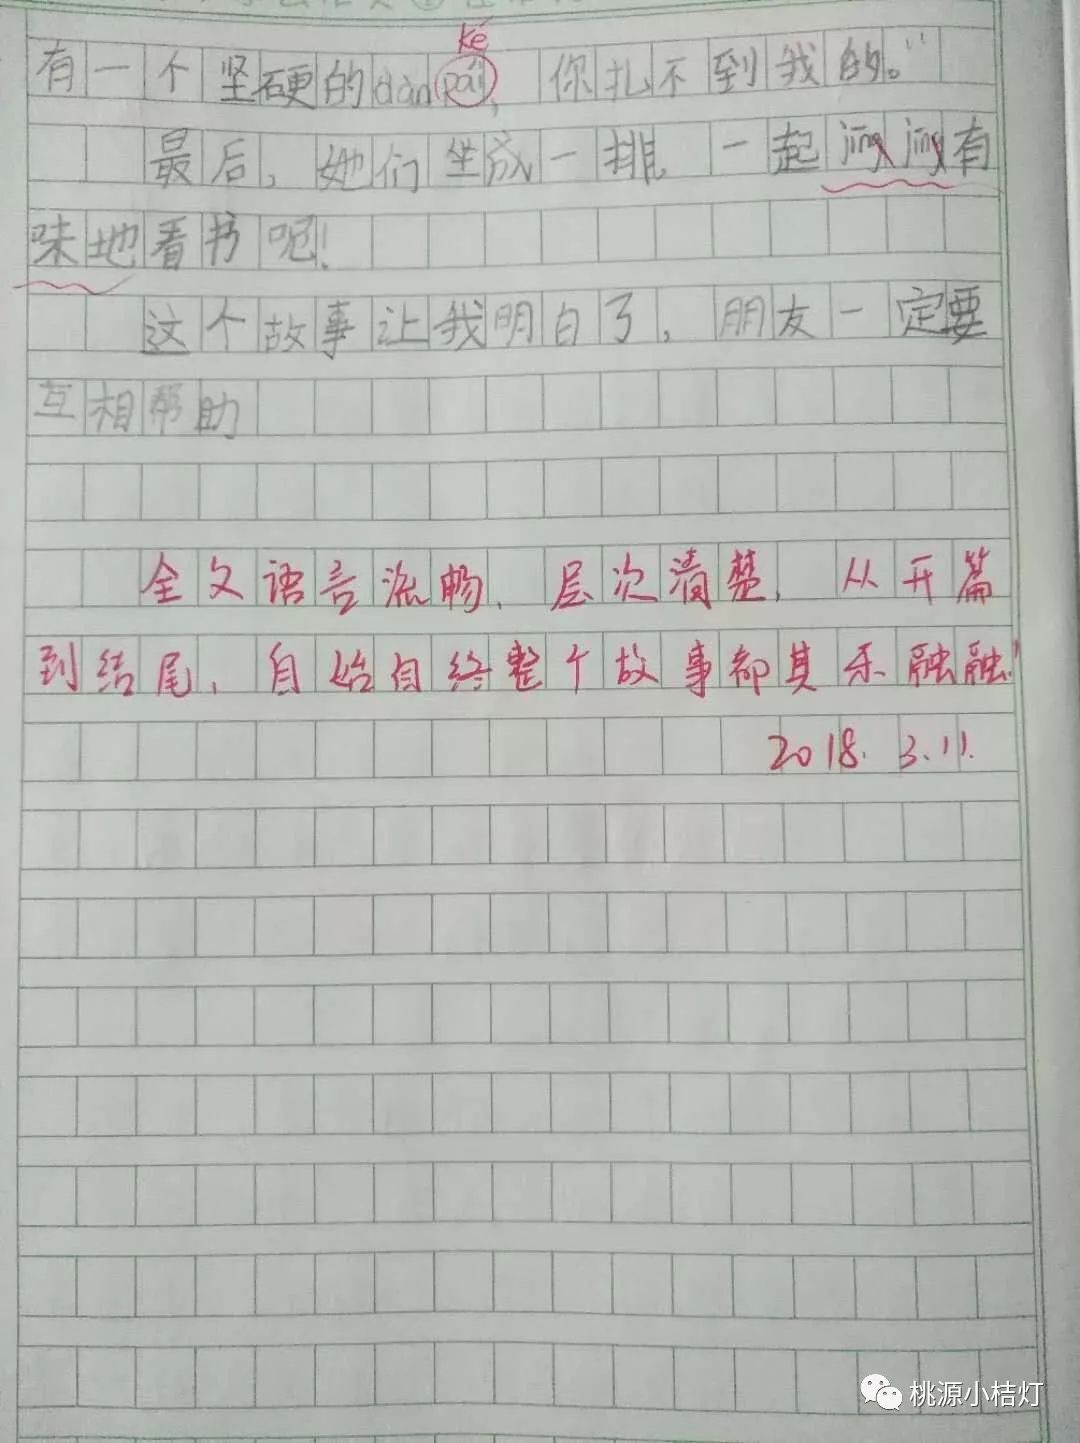 ké
有一个坚硬的dàn pái,你扎不到我的。”
最后,她们坐成一排,一起jīng jīng有
味地看书呢!
这个故事让我明白了,朋友一定要
互相帮助
全文语言流畅、层次清楚,从开篇
到结尾,自始自终整个故事都其乐融融!
2018.3.11.
桃源小桔灯